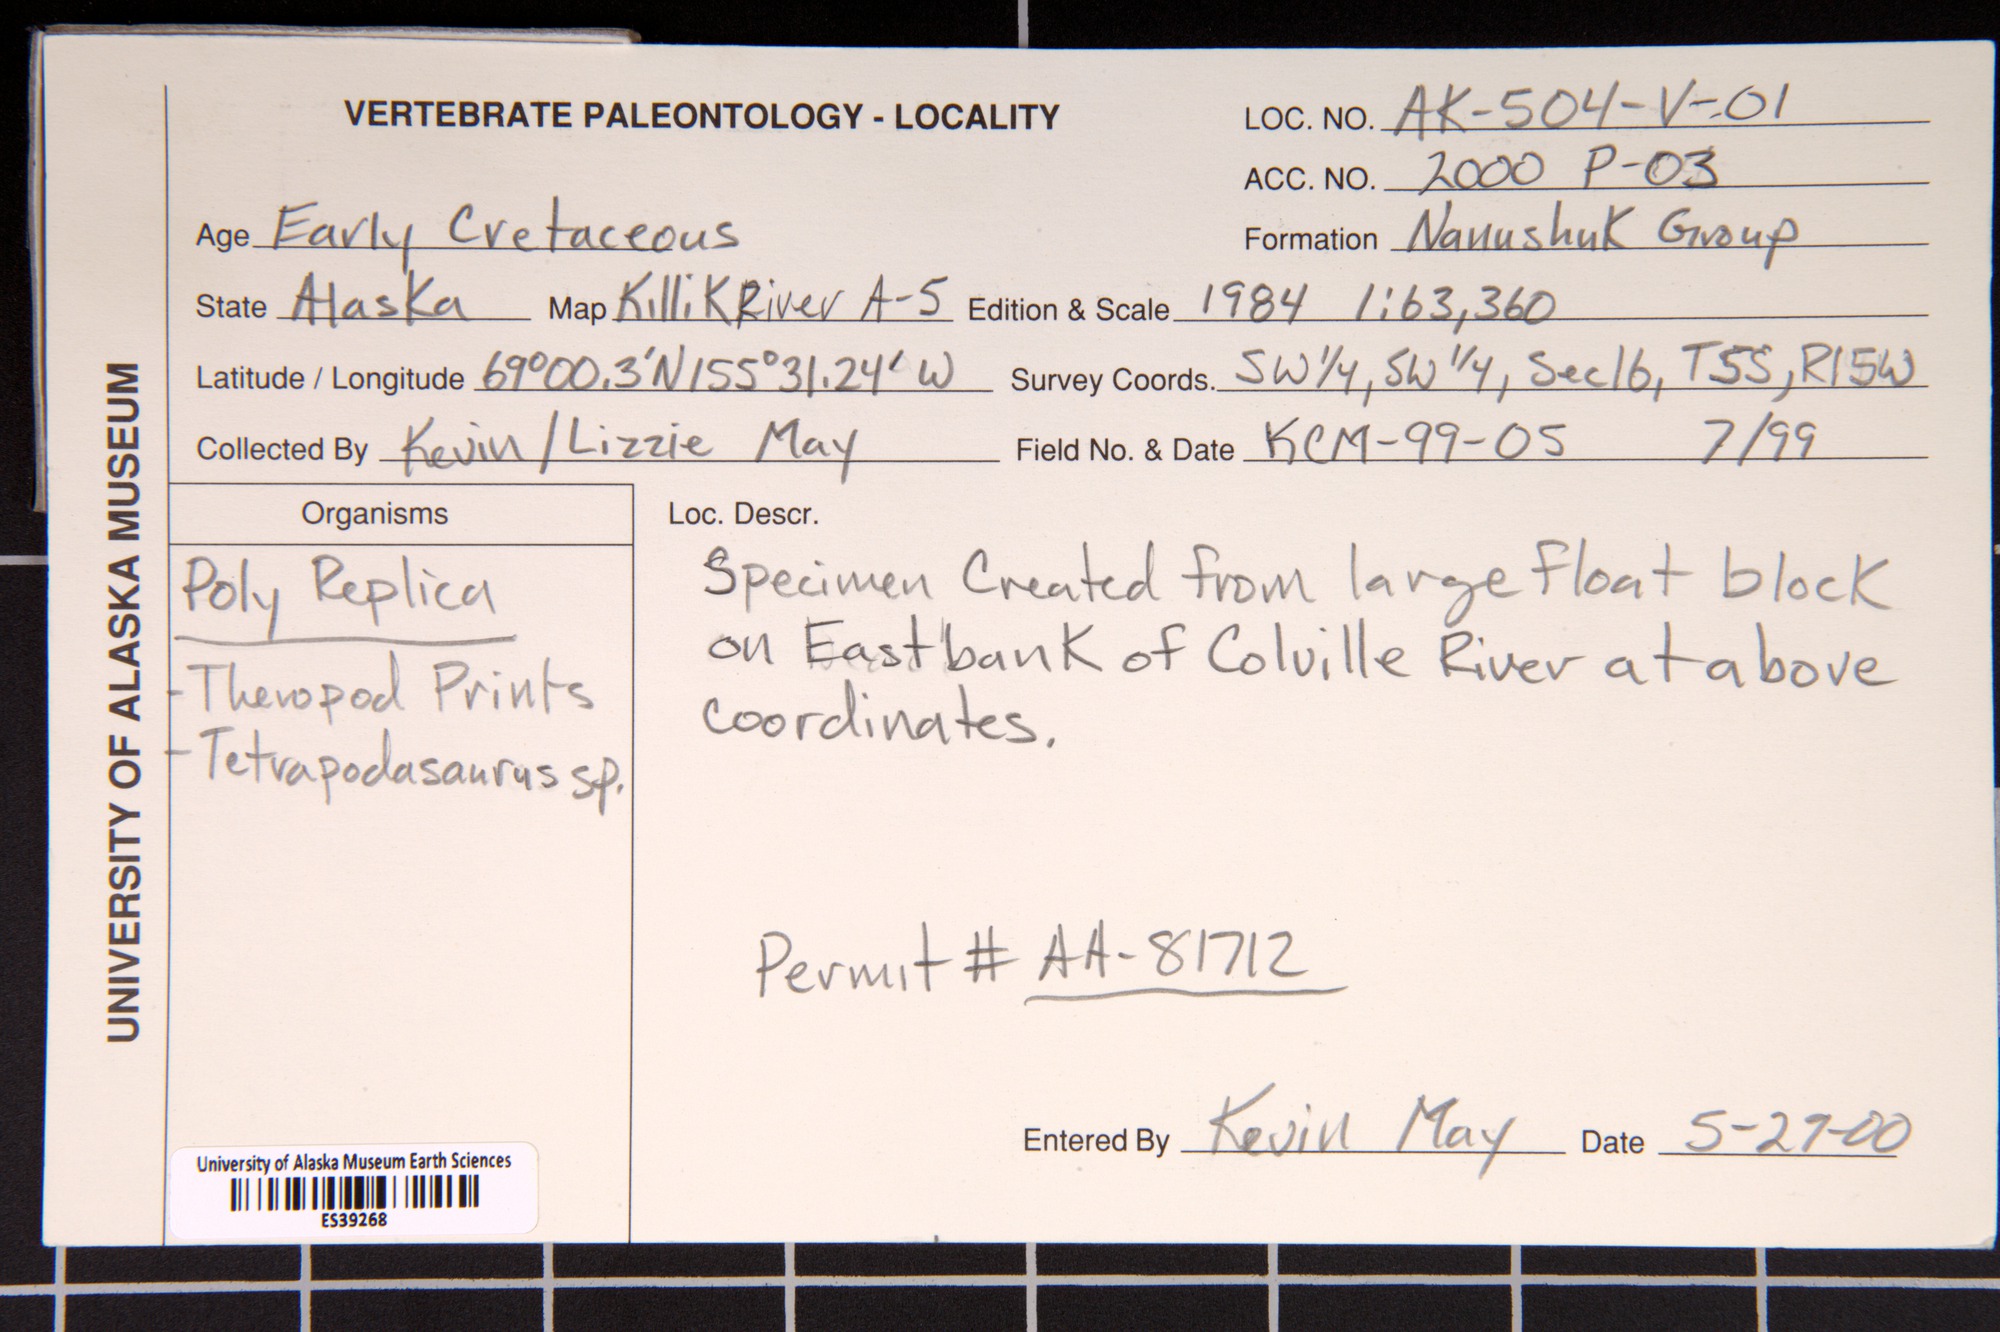 VERTEBRATE PALEONTOLOGY - LOCALITY
LOC. NO. AK-504-V-01
ACC. NO. 2000 P-03
Age Early Cretaceous
Formation Nanushuk Group
State Alaska Map Killik River A-5 Edition & Scale 1984 1:63,360
Latitude / Longitude 69°00.3'N/155°31.24' W Survey Coords. SW 1/4, SW 1/4, Sec 16, T5S, R15W
Collected By Kevin/Lizzie May Field No. & Date KCM-99-05 7/99
UNIVERSITY OF ALASKA MUSEUM
Organisms
Poly Replica
- Theropod Prints
- Tetrapodasaurus sp.
Loc. Descr.
Specimen Created from large float block
on East bank of Colville River at above
coordinates.
Permit # AA-81712
Entered By Kevin May Date 5-27-00
University of Alaska Museum Earth Sciences
ES39268